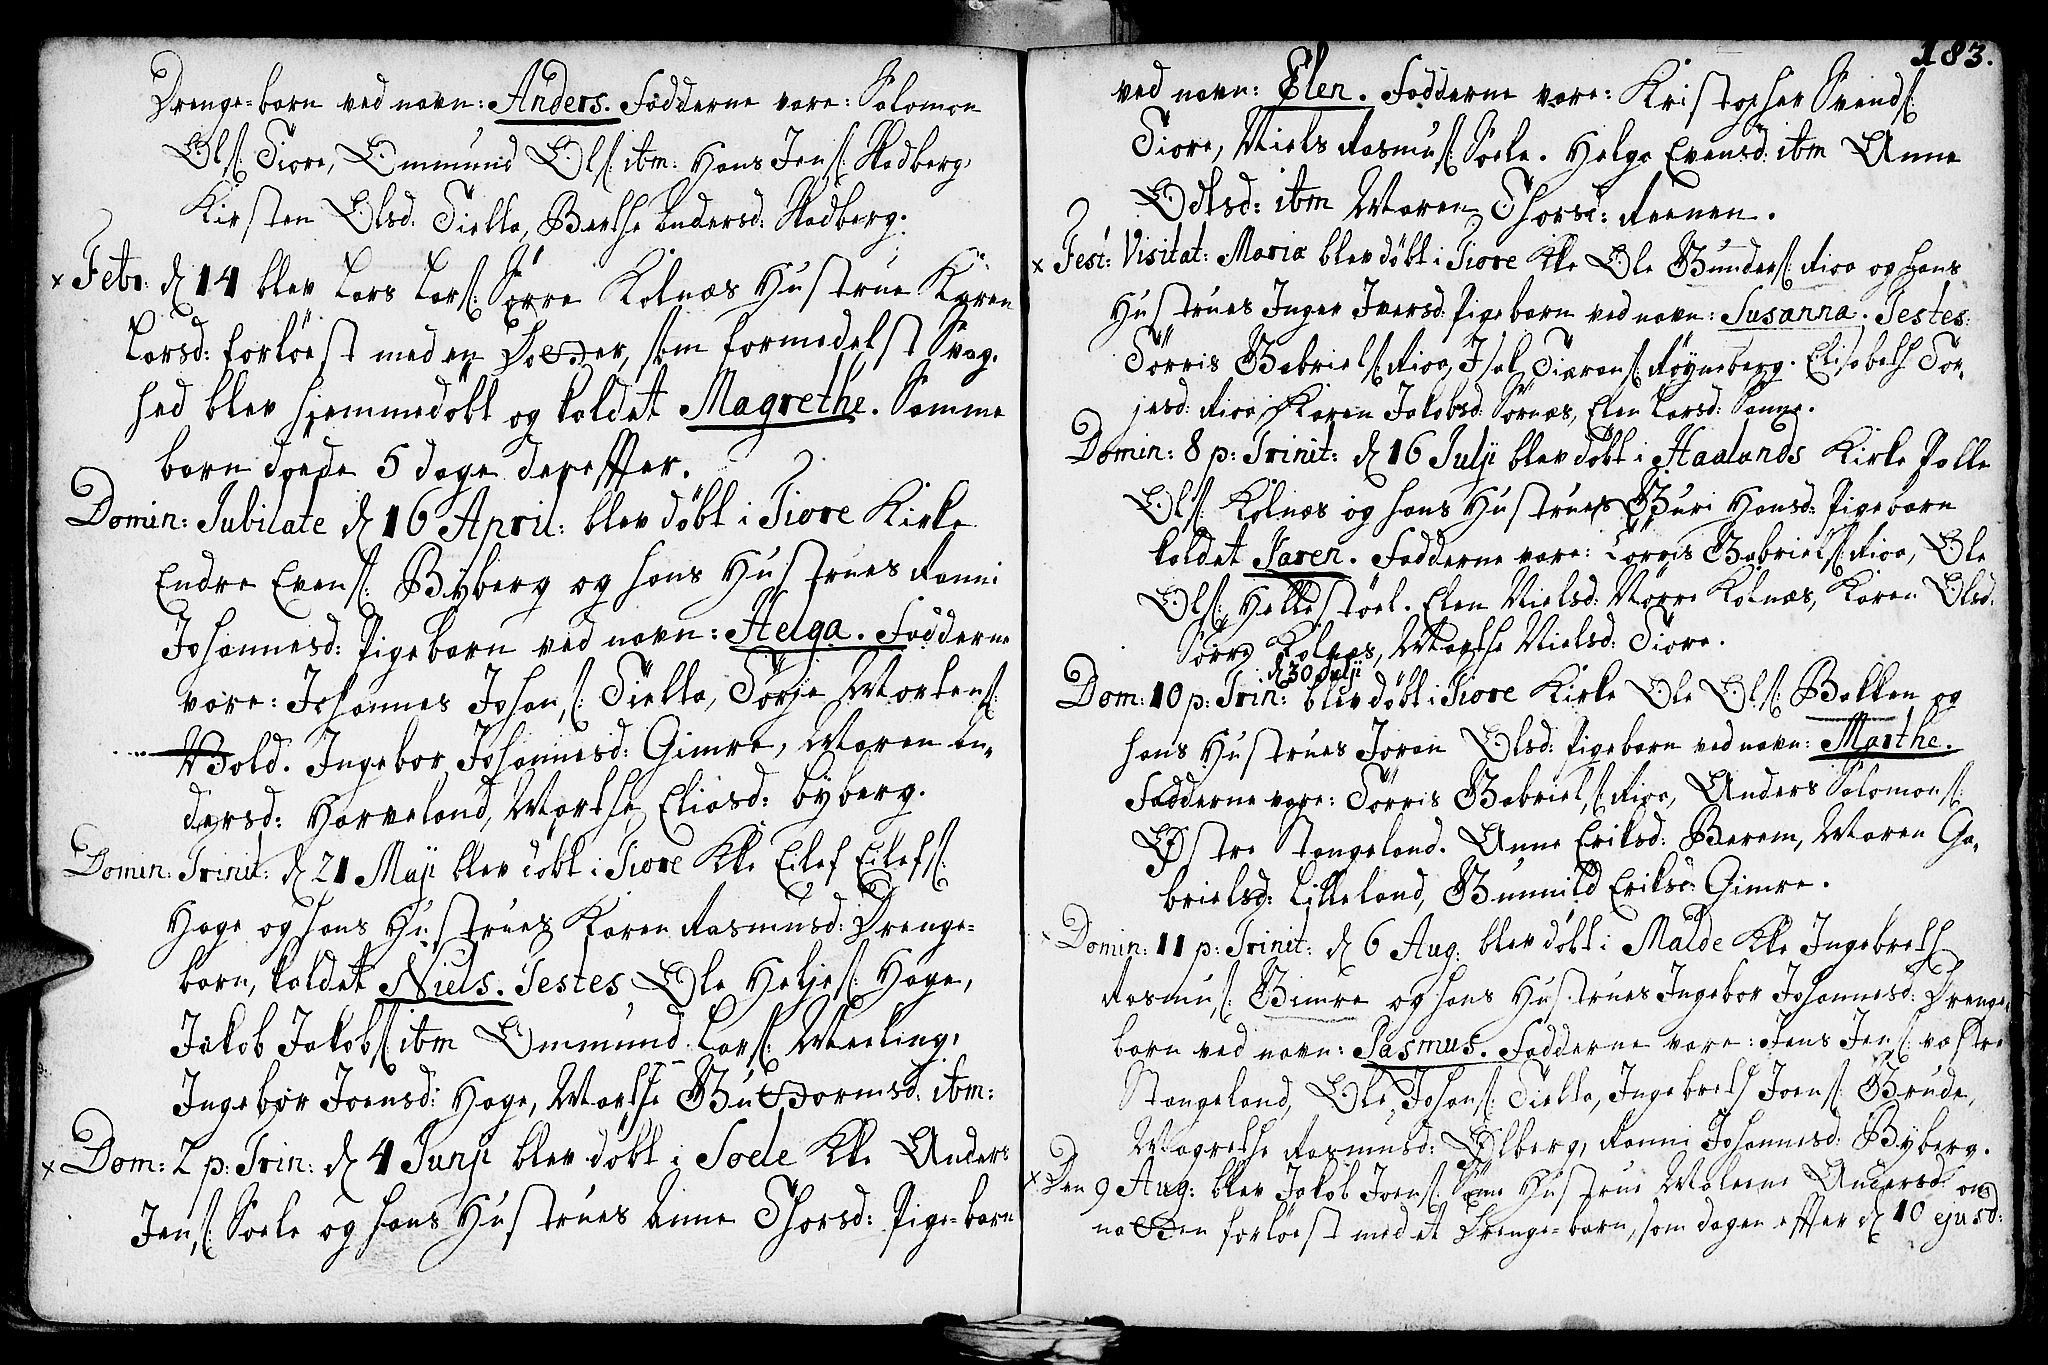 Drenge-barn ved navn: Anders. Fadderne vare: Salomon
Ols: Tiore, Ommund Ols: ibm: Hans Jens: Skadberg,
Kirsten Olsd: Tielta, Berthe Andersd: Skadberg.
x Febr: d 14 blev Lars Lars: Sörre Kolnæs Hustrue Karen
Larsd: forlöest med en Dotter, som formedelst Svag-
hed blev hiemmedöbt og kaldet Magrethe. Samme
barn döede 5 dage dereffter.
Domin: Jubilate d 16 April: blev döbt i Tiore Kirke
Endre Evens: Byberg og hans Hustrues Ranni
Johannesd: Pigebarn ved navn: Helga. Fadderne
vare: Johannes Johans: Tielta, Törje Mortens:
Vold. Ingebor Johannesd: Gimre, Maren An-
dersd: Harveland, Marthe Eliasd: byberg.
Domin: Trinit: d 21 Maji blev döbt i Tiore Kke Eilef Eilefs:
Hage og hans Hustrues Karen Rasmusd: Drenge-
barn, kaldet Niels. Testes Ole Heljes: Hage,
Jakob Jakobs: ibm Ommund Lars: Meeling,
Ingebor Joensd: Hage, Marthe Guttormsd: ibm:
x Dom: 2 p: Trin: d 4 Junji blev döbt i Soele Kke Anders
Jens: Soele og hans Hustrues Anne Thorsd: Pige-barn
183.
ved navn: Elen. Fadderne vare: Kristopher Svends:
Tiore, Niels Rasmus: Soele. Helga Evensd: ibm Anne
Odlsd: ibm Maren Thorsd: Reenen.
x Fest: Visitat: Maria blev döbt i Tiore Kke Ole Gunders: Rioa og hans
Hustrues Inger Iversd: Pigebarn ved navn: Susanna. Testes:
Törris Gabriels: Rioa, Isak Tiærans: Röyneberg. Elisabeth Tör-
jesd: Rioa, Karen Jakobsd: Sörnæs, Elen Larsd: Sande.
Domin: 8 p: Trinit: d 16 Julji blev döbt i Haalands Kirke Palle
Ols: Kolnæs og hans Hustrues Guri Hansd: Pigebarn
kaldet Jaren. Fadderne vare: Törris Gabriels: Rioa, Ole
Ols: Hellestöel. Elen Nielsd: Nörre Kolnæs, Karen Olsd:
Sörre Kolnæs, Marthe Nielsd: Tiore.
d 30 Julji
Dom: 10 p: Trin: blev döbt i Tiore Kirke Ole Ols: Bakken og
hans Hustrues Joran Olsd: Pigebarn ved navn: Marthe.
Fadderne vare: Törris Gabriels: Rioa, Anders Salomons:
Östre Stangeland. Anne Eriksd: Berem, Maren Ga-
brielsd: Lilleland, Gunnild Eriksd: Gimre.
Domin: 11 p: Trinit: d 6 Aug: blev döbt i Malde Kke Ingebreth
Rasmus: Gimre og hans Hustrues Ingebor Johannesd: Drenge-
barn ved navn: Rasmus. Fadderne vare: Jens Jens: væstre
Stangeland, Ole Johans: Tielta, Ingebreth Joens: Grude,
Magrethe Rasmusd: Ölberg, Ranni Johannesd: Byberg.
x Den 9 Aug: blev Jakob Joens: Hustrue Malene Andersd: om
natten forlöest med et Drenge-barn, som dagen effter d 10 ejusd: